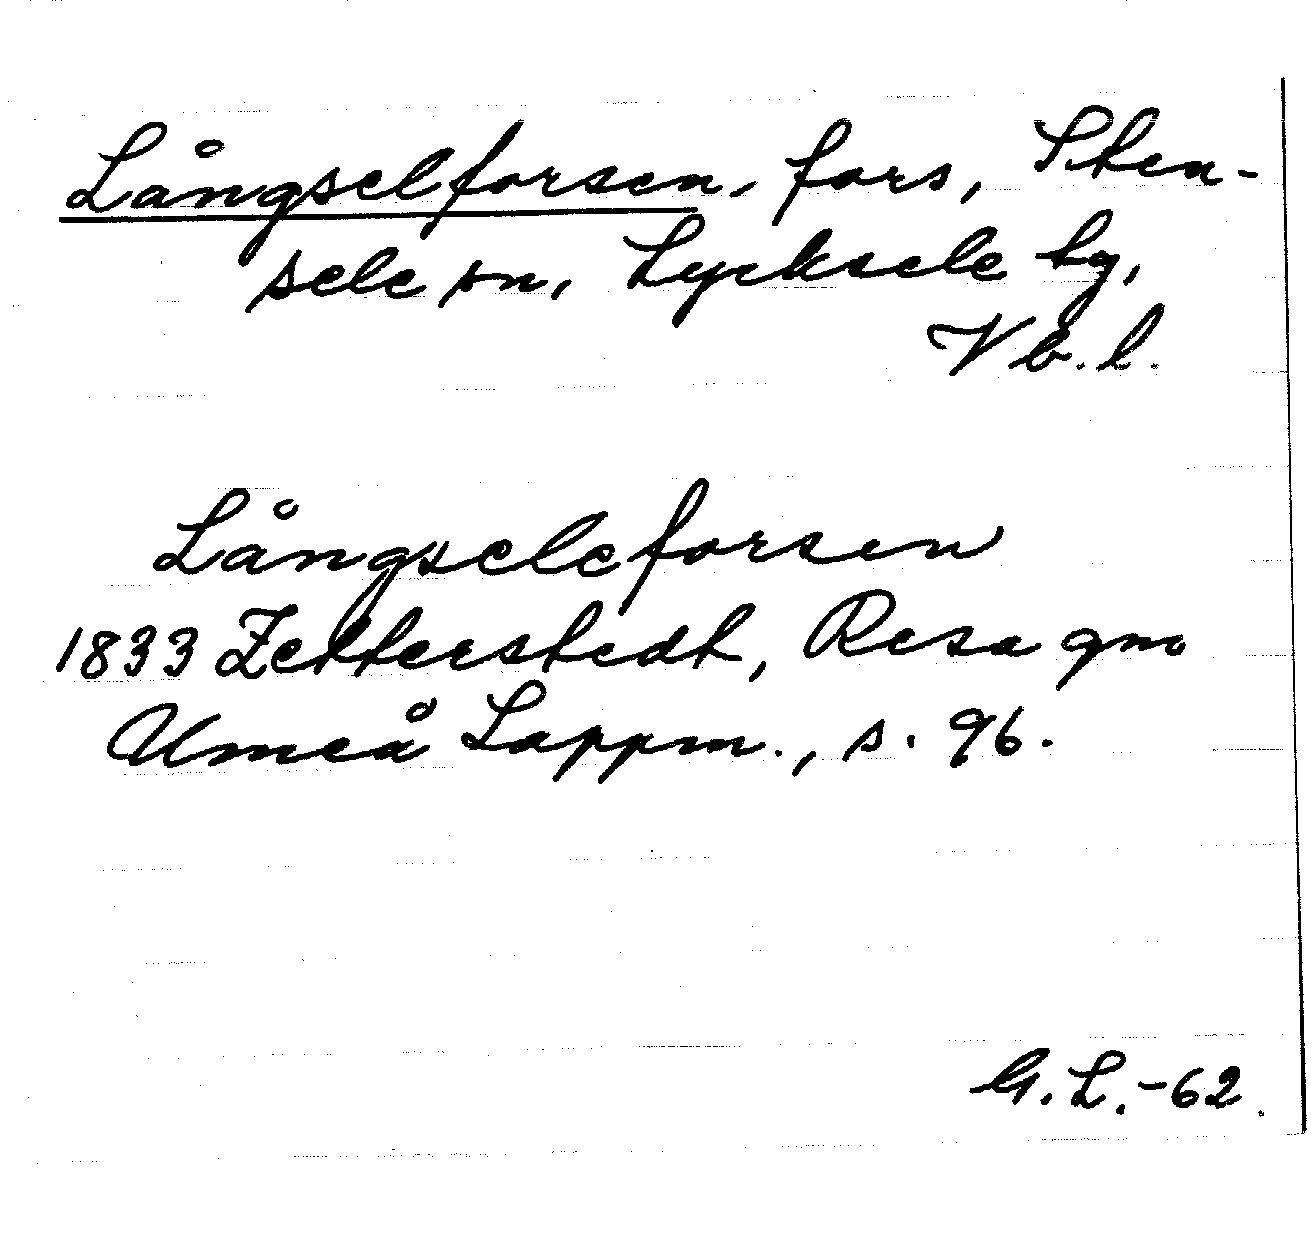 Långselforsen, fors, Sten-
sele sn, Lycksele tg,
Vb.l.
Långseleforsen
1833 Zetterstedt, Resa gm
Umeå Lappm., s. 96.
G.L.-62.